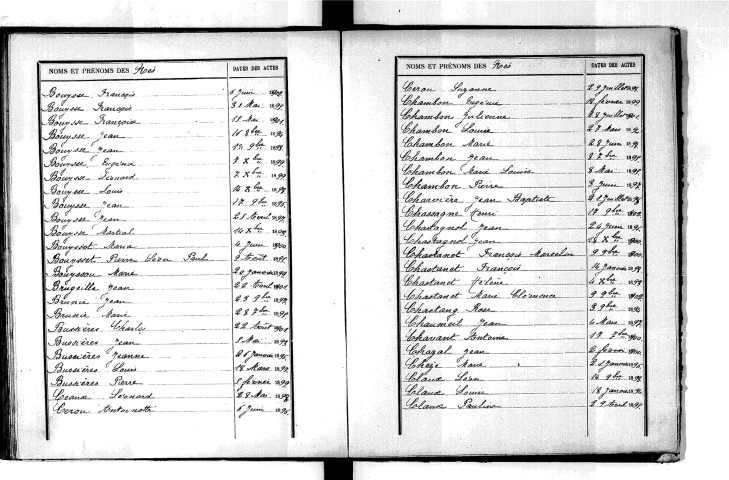 NOMS ET PRÉNOMS DES Nés DATES DES ACTES
Bouysse François 5 Juin
Bouysse François 31 Mai
Bouysse Françoise 18 Mai
Bouysse Jean 11 8bre
Bouysse Jean 9bre
Bouysse Eugénie 7 Xbre 1899
Bouysse Léonard 7 Xbre 1899
Bouysse Louis 14 Xbre
Bouysse Jean 17 9bre
Bouysse Jean 21 Avril
Bouysse Martial 14 Xbre
Bouysset Maria 4 Juin
Bouysset Pierre Léon Paul 9 Août
Bouysson Marie 20 Janvier
Brugeille Jean 22 Avril
Brunie Jean 23 9bre
Brunie Marie 28 7bre
Bussières Charles 22 Août
Bussières Jean 5 Mai
Bussières Jeanne 25 Janvier
Bussières Louis 18 Mars
Bussières Pierre 5 février 1899
Ceaux Léonard 28 Mai
Cerou Antoinette 5 Juin
NOMS ET PRÉNOMS DES Nés DATES DES ACTES
Cerou Suzanne 29 Juillet
Chambon Eugénie 18 février 1899
Chambon Julienne 28 Juillet
Chambon Louise 27 Mars
Chambon Marie 28 Juin
Chambon Jean 8 7bre
Chambon Marie Louise 8 Mai
Chambon Pierre 3 Juin
Charvière Jean Baptiste 21 Juillet
Chassagne Henri 17 9bre
Chastagnol Jean 24 Juin
Chastagnol Jean 18 Xbre
Chastanet François Marcelin 9 9bre
Chastanet François 14 Janvier
Chastanet Hélène 4 Xbre
Chastanet Marie Clémence 9 9bre
Chastang Rose 3 9bre
Chaumeil Jean 4 Mars
Chauvant Antoine 17 7bre
Chazal Jean 2 février
Chèze Marie 21 Janvier
Claux Léon 14 9bre
Claux Louise 18 Janvier
Claux Pauline 29 Avril